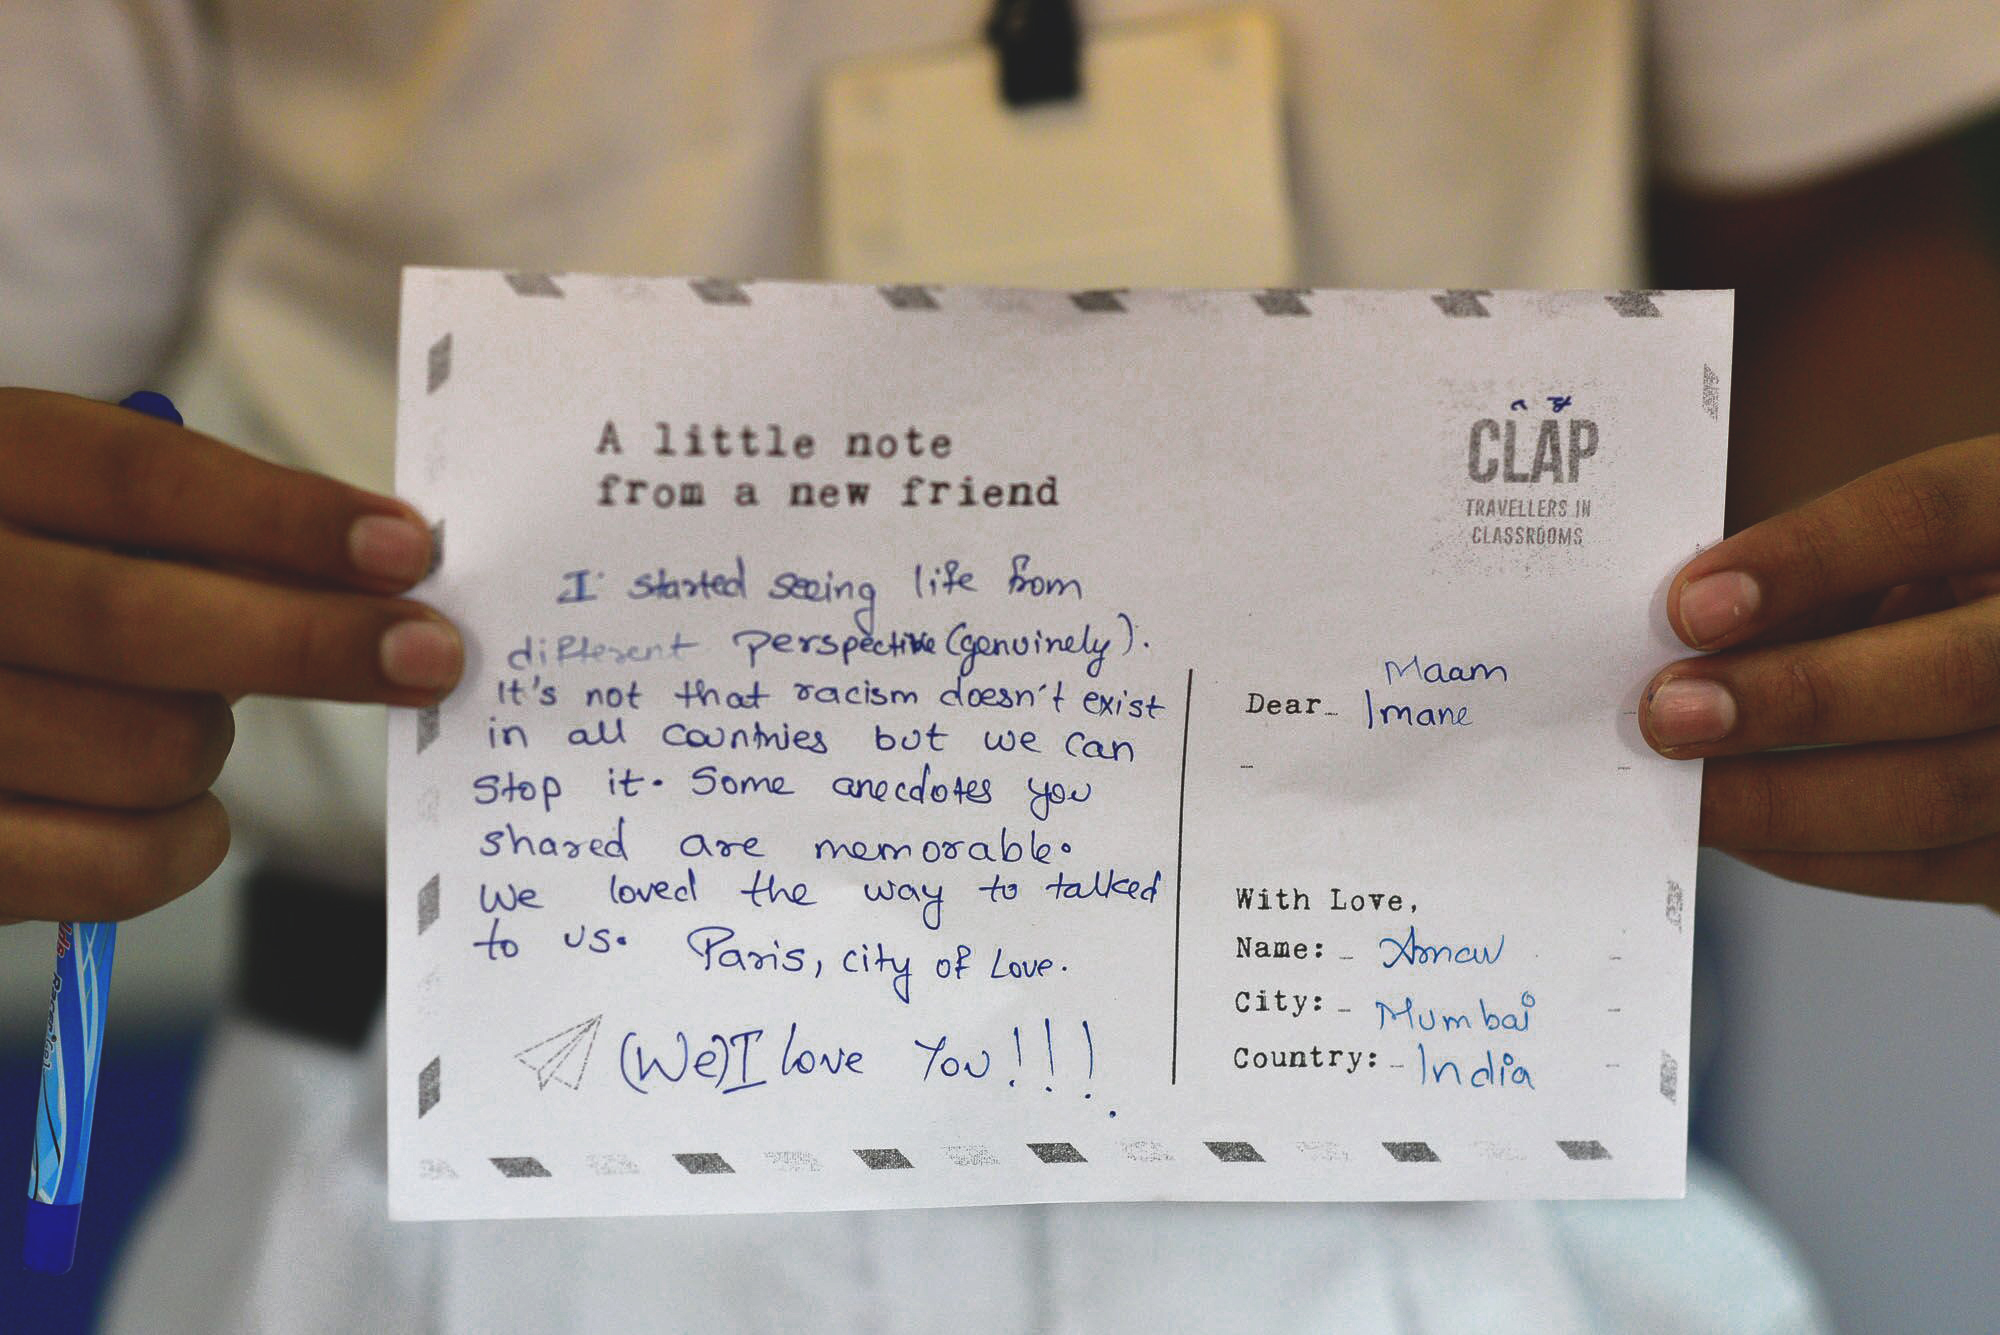 A little note
from a new friend
CLAP
TRAVELLERS IN
CLASSROOMS
I started seeing life from
different perspective (genuinely).
It's not that racism doesn't exist
in all countries but we can
stop it. Some anecdotes you
shared are memorable.
We loved the way to talked
to us. Paris, city of Love.
(We) I love You!!!
Maam
Dear Imane
With Love,
Name: Arnav
City: Mumbai
Country: India